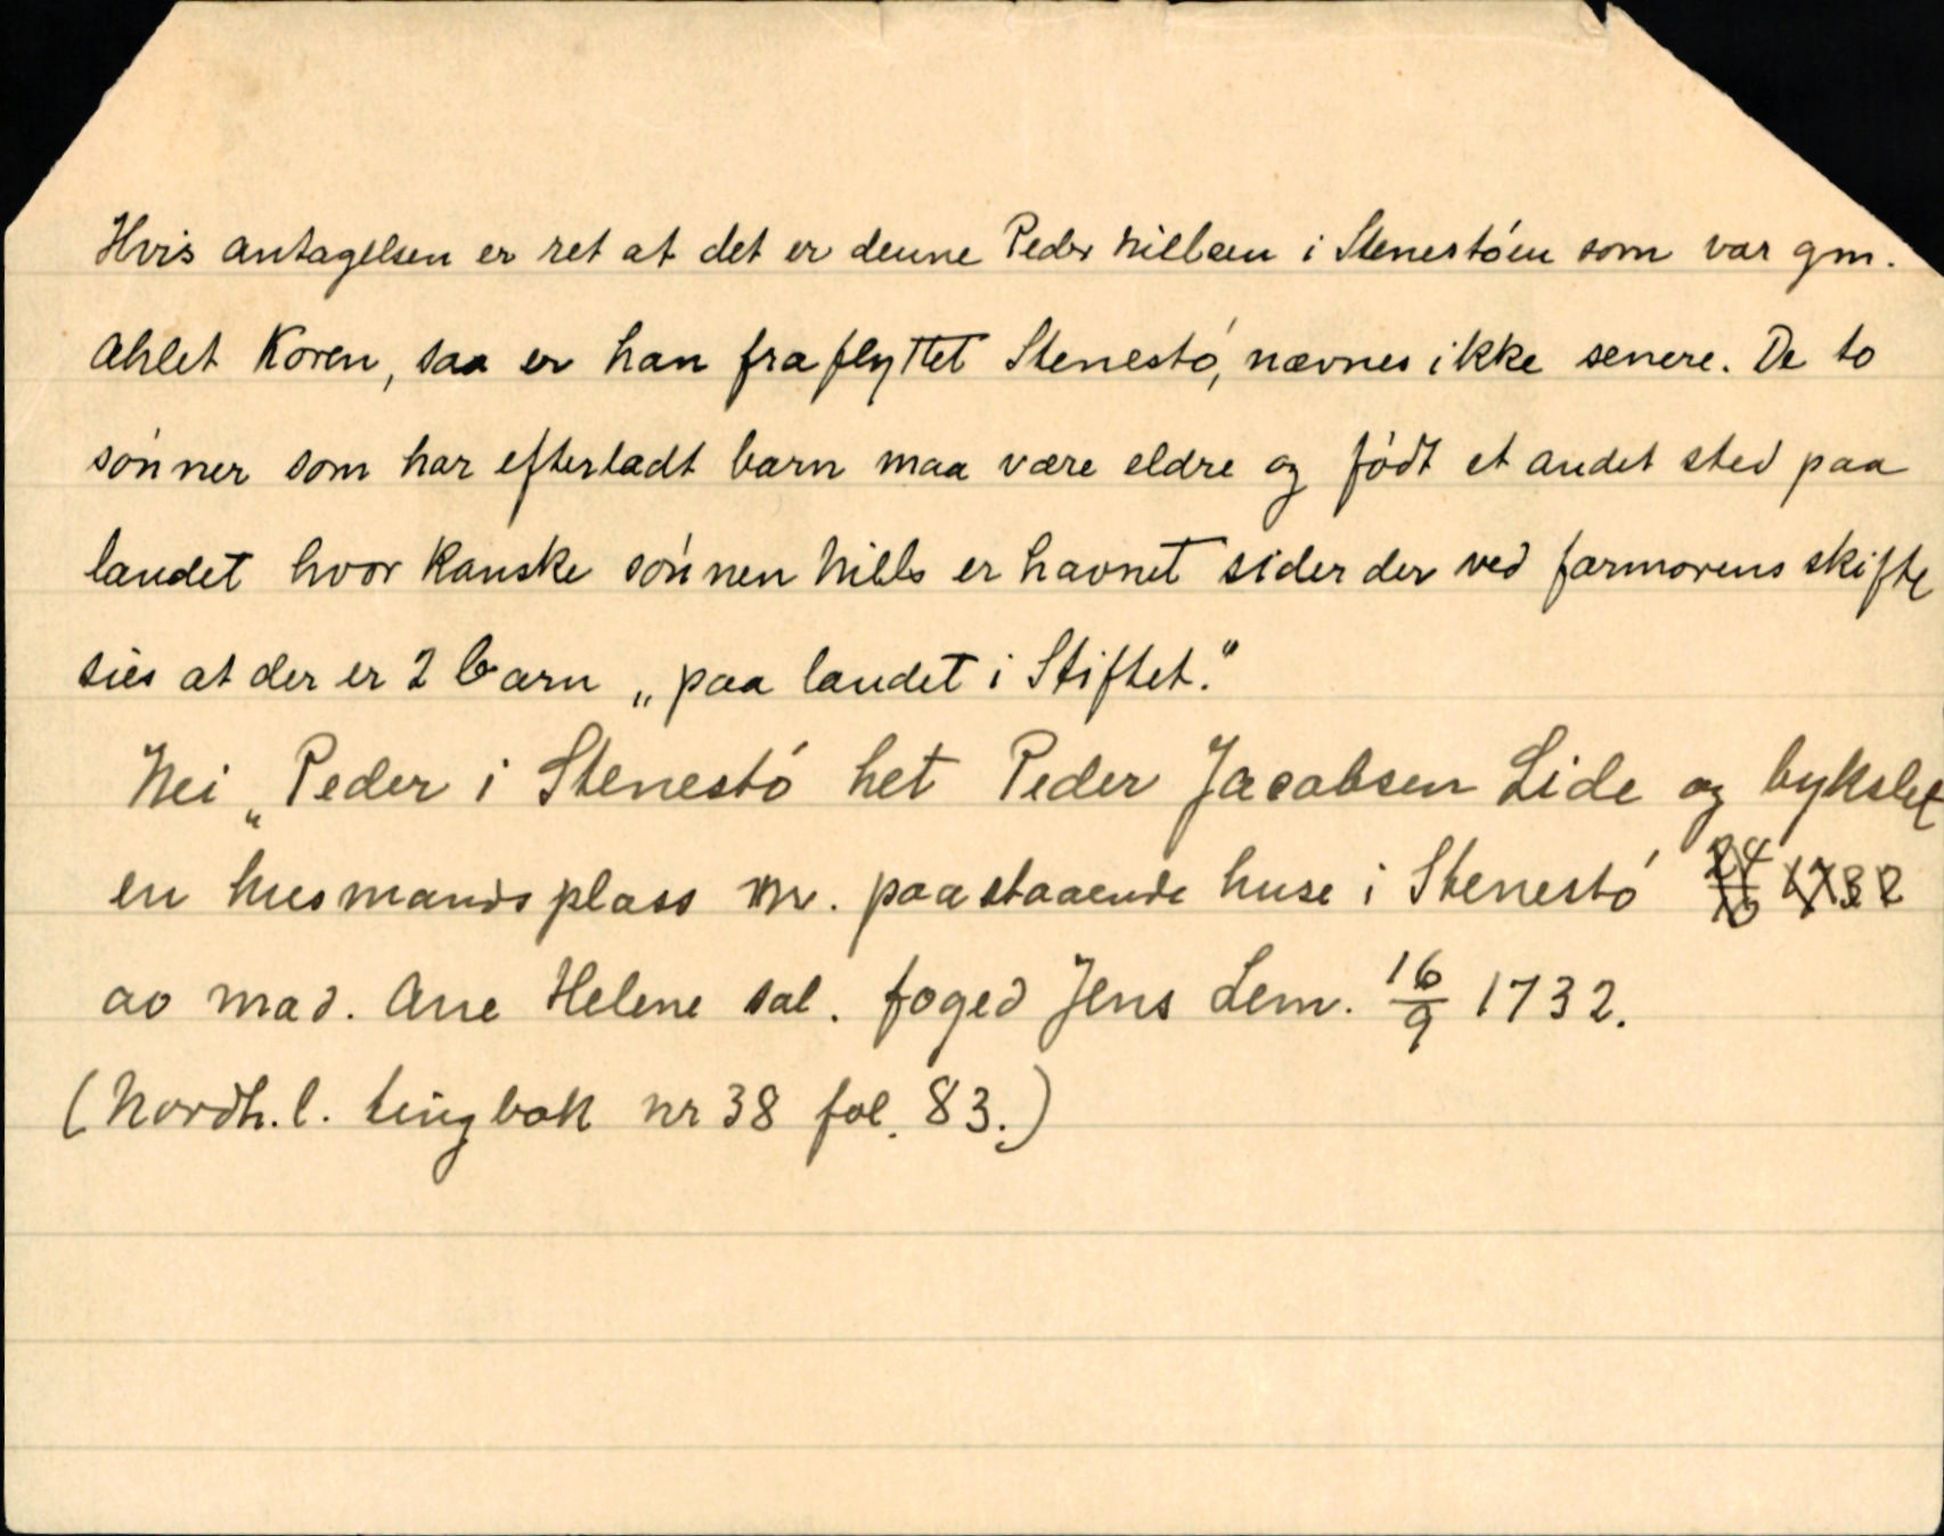 Hvis antagelsen er ret at det er denne Peder Nillsen i Stenestóen som var gm.
Ahlet Koren, saa er han fraflyttet Stenestó, nævnes ikke senere. De to
sónner som har efterladt barn maa være eldre og fódt et andet sted paa
landet hvor kanske sónnen Nills er havnet siden der ved farmorens skifte
sies at der er 2 barn „paa landet i Stiftet."
Nei „Peder i Stenestó het Peder Jacobsen Lide og bykslet
en husmandsplass m. paastaaende huse i Stenestó 1732
av mad. Ane Helene sal. foged Jens Lem. 16/9 1732.
(Nordh.l. tingbok nr 38 fol. 83.)